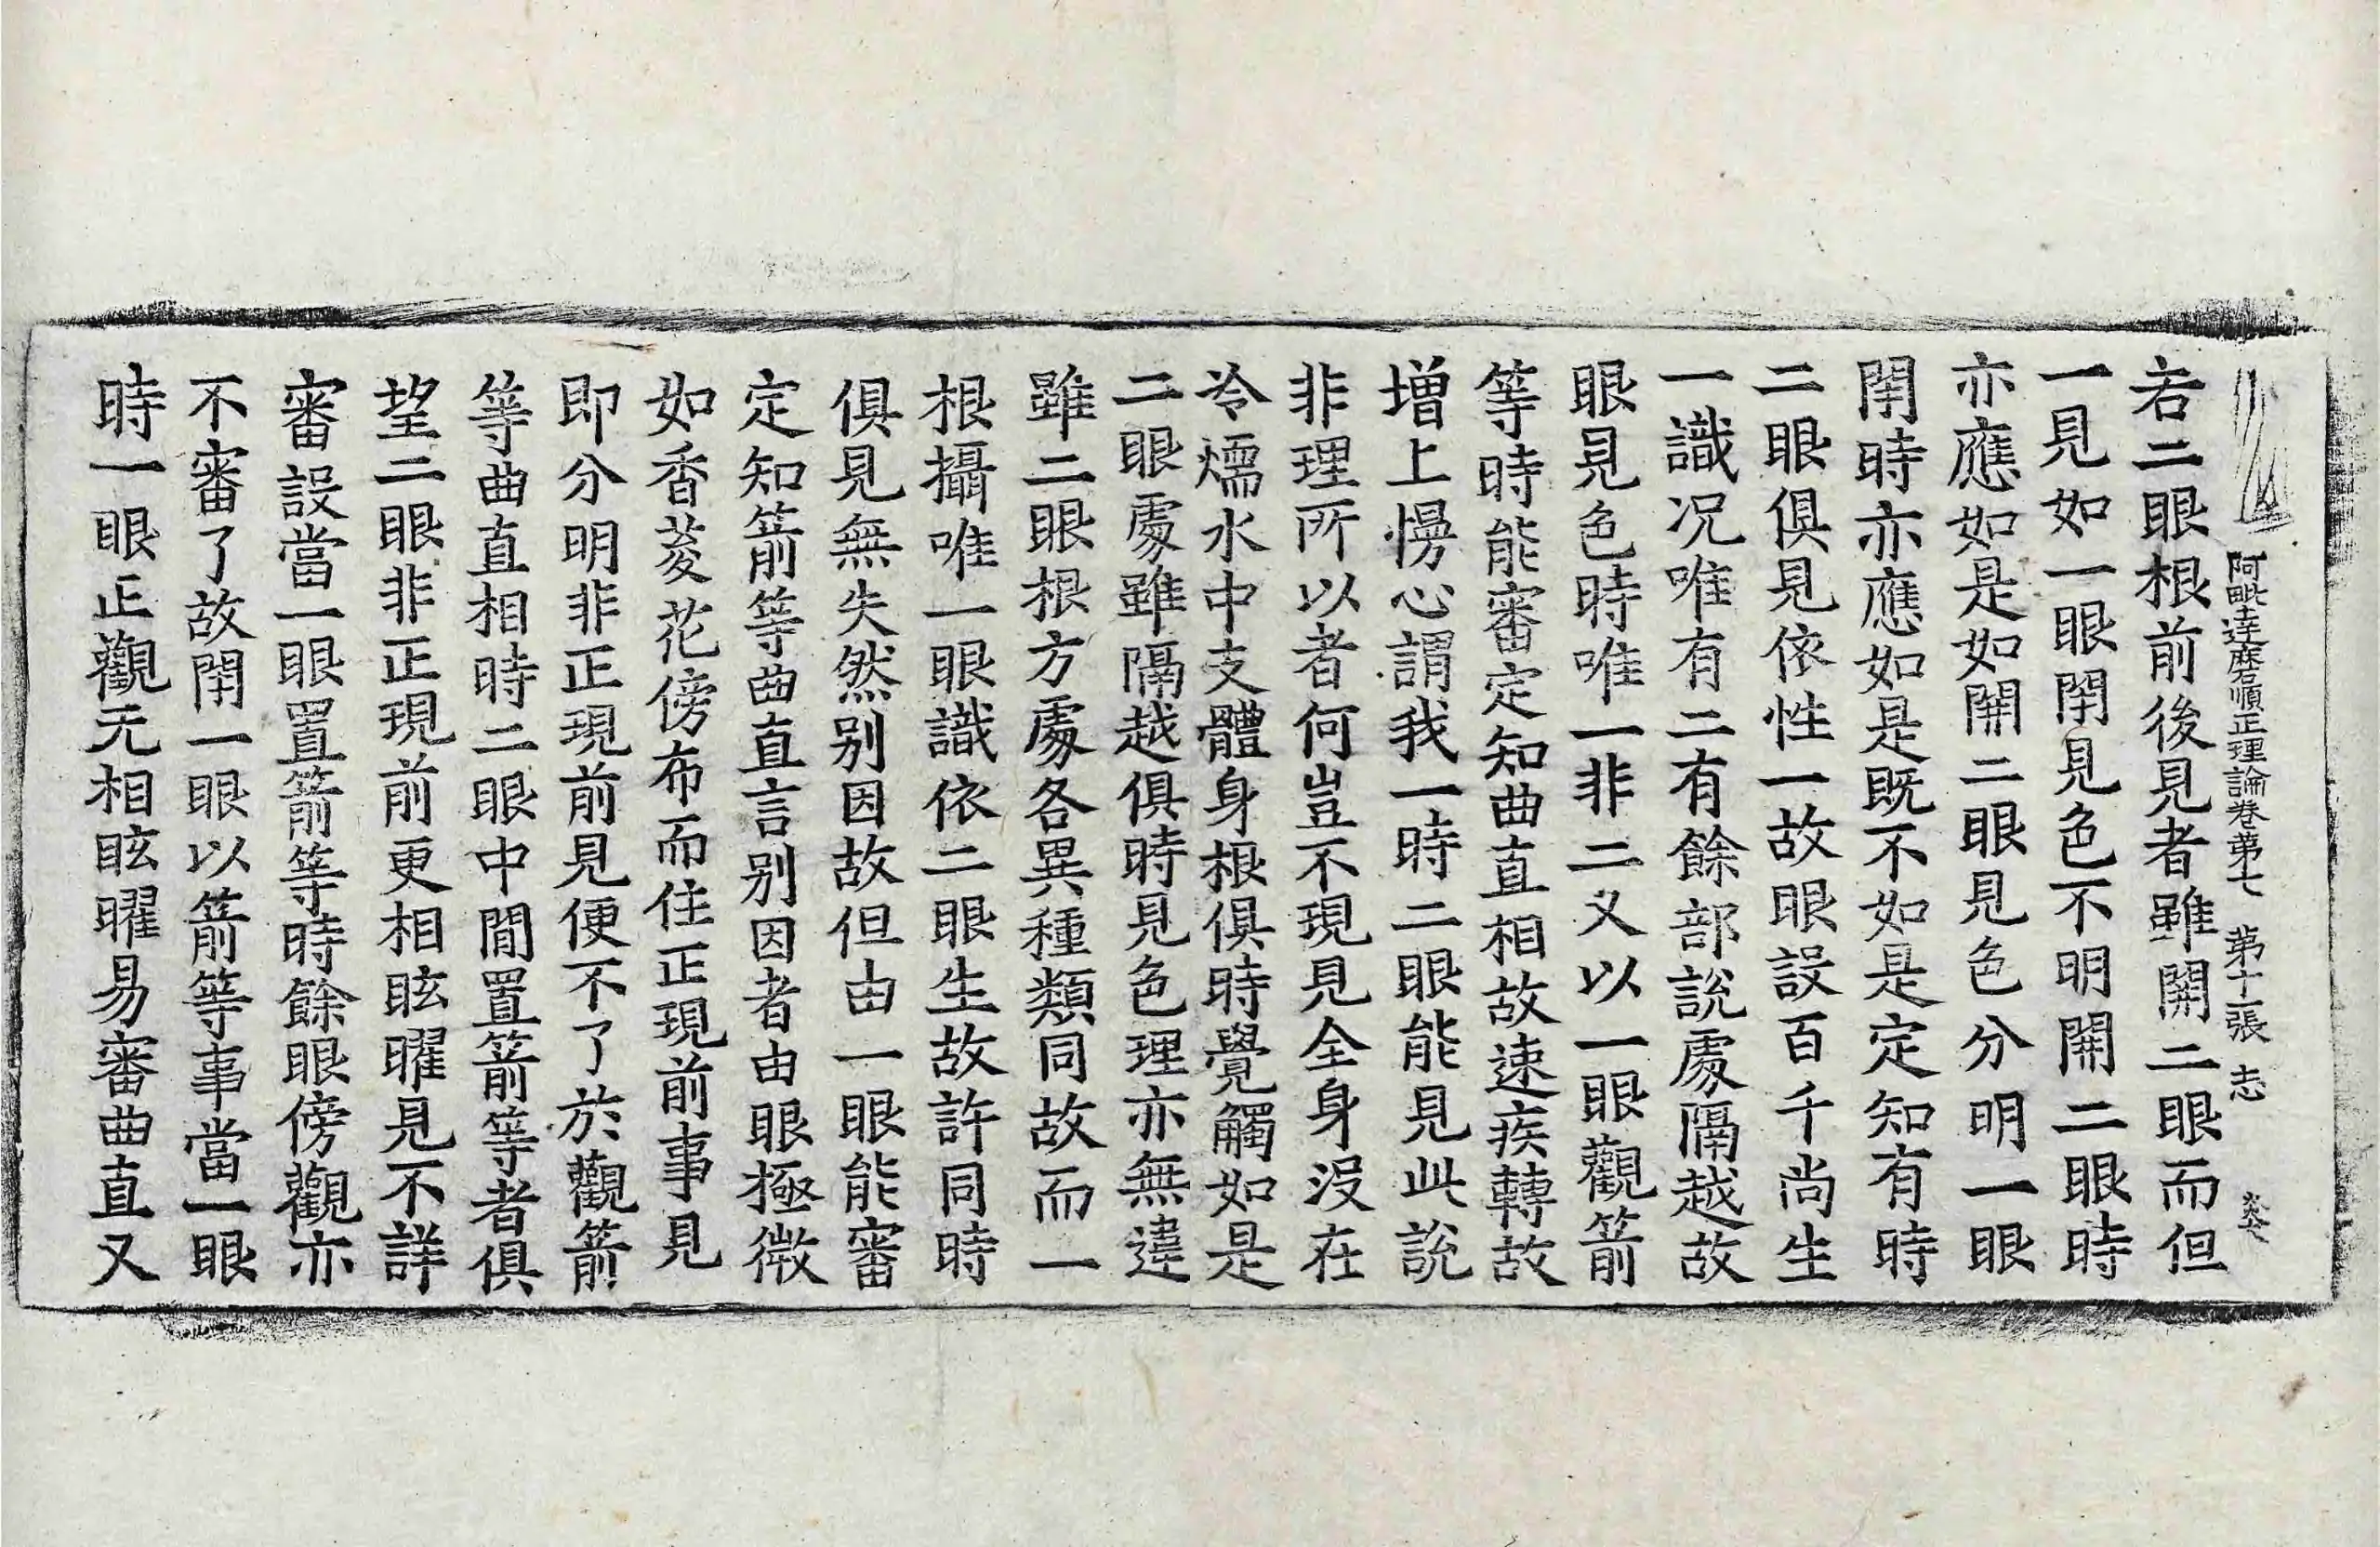 阿毗達磨順正理論卷第七　第十一張　志
若二眼根前後見者雖開二眼而但
一見如一眼閇見色不明開二眼時
亦應如是如開二眼見色分明一眼
閇時亦應如是旣不如是定知有時
二眼俱見依性一故眼設百千尚生
一識况唯有二有餘部說處隔越故
眼見色時唯一非二又以一眼觀箭
等時能審定知曲直相故速疾轉故
增上慢心謂我一時二眼能見此說
非理所以者何豈不現見全身沒在
冷煗水中支體身根俱時覺觸如是
二眼處雖隔越俱時見色理亦無違
雖二眼根方處各異種類同故而一
根攝唯一眼識依二眼生故許同時
俱見無失然别因故但由一眼能審
定知箭等曲直言别因者由眼極微
如香荾花傍布而住正現前事見
即分明非正現前見便不了於觀箭
等曲直相時二眼中間置箭等者俱
望二眼非正現前更相眩曜見不詳
審設當一眼置箭等時餘眼傍觀亦
不審了故閇一眼以箭等事當一眼
時一眼正觀无相眩曜易審曲直又